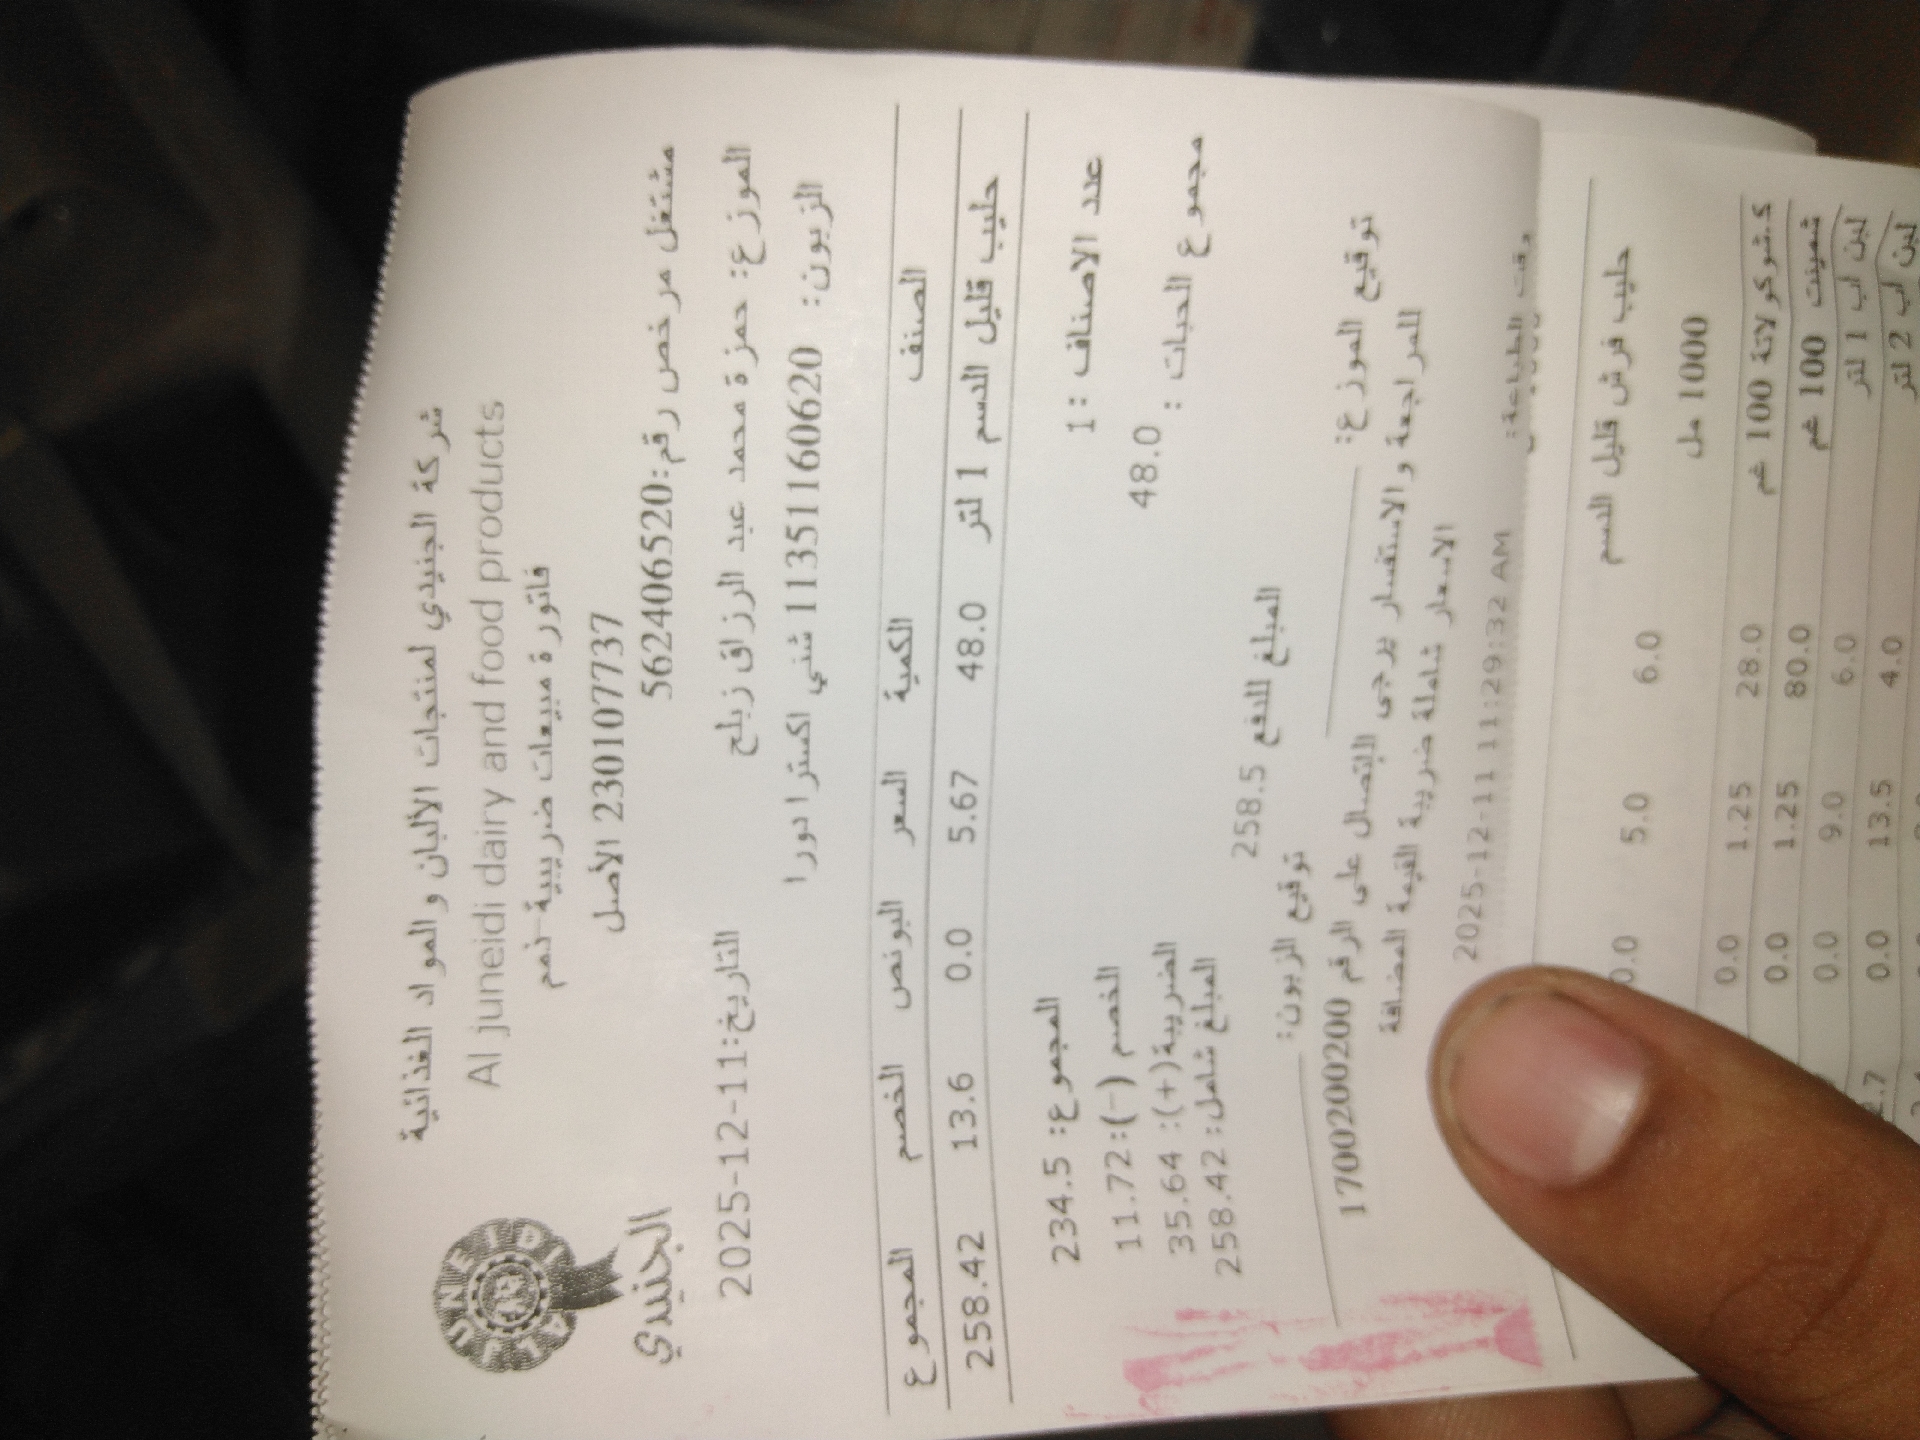 AL JUNEIDI
الجنيدي
شركة الجنيدي لمنتجات الألبان والمواد الغذائية
Al juneidi dairy and food products
فاتورة مبيعات ضريبية-ذمم
230107737 الأصل
مشتغل مرخص رقم:562406520
الموزع: حمزة محمد عبد الرزاق زبلح التاريخ:2025-12-11
الزبون: 11351160620 شني اكسترا دورا
الصنف الكمية السعر البونص الخصم المجموع
حليب قليل الدسم 1 لتر 48.0 5.67 0.0 13.6 258.42
عدد الاصناف : 1 المجموع: 234.5
48.0 الخصم (-): 11.72
مجموع الحبات : الضريبة(+): 35.64
المبلغ شامل: 258.42
المبلغ للدفع 258.5
توقيع الموزع: توقيع الزبون:
للمراجعة والاستفسار يرجى الاتصال على الرقم 1700200200
الاسعار شاملة ضريبة القيمة المضافة
وقت الطباعة: 2025-12-11 11:29:32 AM
حليب فرش قليل الدسم 6.0 5.0 0.0
1000 مل
ك.شوكولاتة 100 غم 28.0 1.25 0.0
شمينت 100 غم 80.0 1.25 0.0
لبن اب 1 لتر 6.0 9.0 0.0
لبن اب 2 لتر 4.0 13.5 0.0